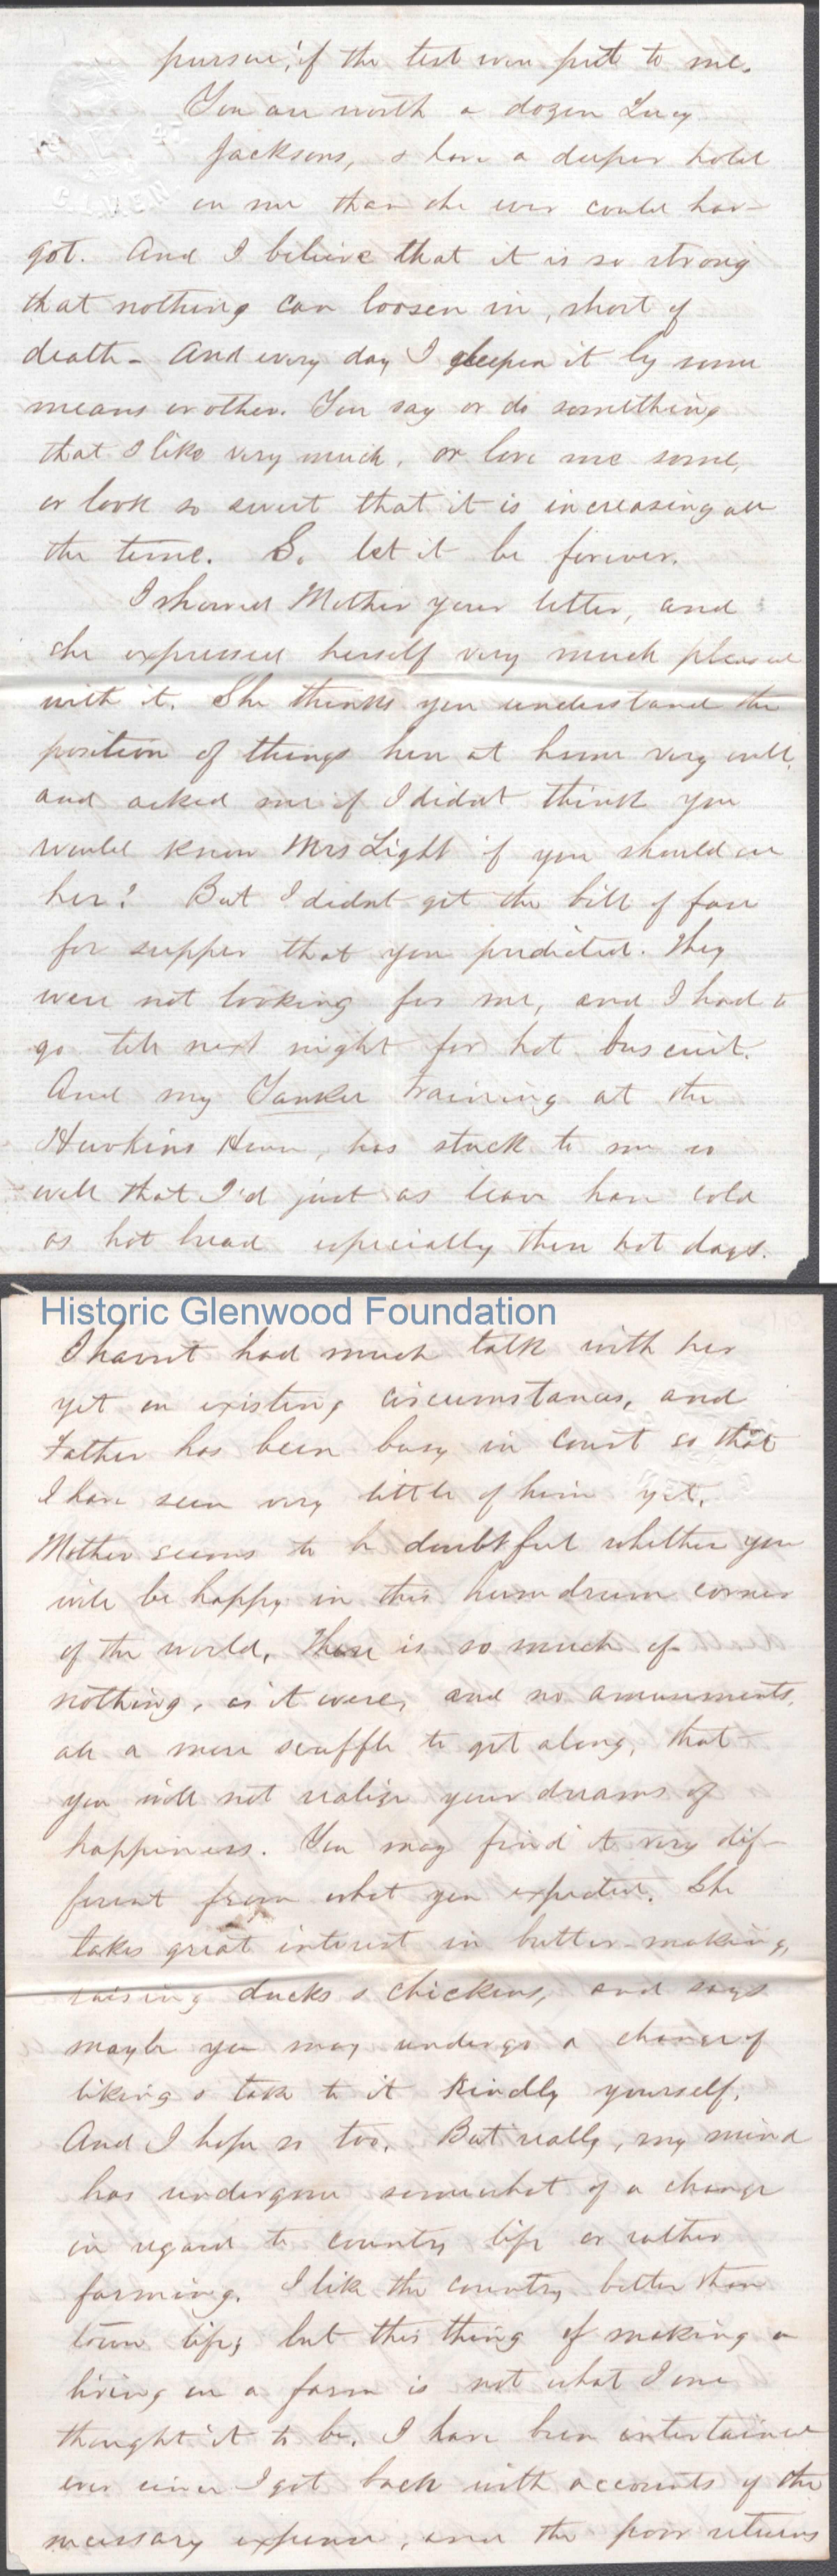 pursue, if the test were put to me.
You are worth a dozen Lucy
Jacksons, & have a deeper hold
on me than she ever could have
got. And I believe that it is so strong
that nothing can loosen in, short of
death - And every day I deepen it by some
means or other. You say or do something
that I like very much, or love me some,
or look so sweet that it is increasing all
the time. So let it be forever.
I showed Mother your letter, and
she expressed herself very much pleased
with it. She thinks you understand the
position of things here at home very well,
and asked me if I didnt think you
would know Mrs Light if you should see
her? But I didnt get the bill of fare
for supper that you predicted. They
were not looking for me, and I had to
go till next night for hot buscuit.
And my Yankee training at the
Hawkins House, has stuck to me so
well that I'd just as leave have cold
as hot bread especially these hot days.
Historic Glenwood Foundation
I havnt had much talk with her
yet on existing circumstances, and
Father has been busy in court so that
I have seen very little of him yet.
Mother seems to be doubtful whether you
will be happy in this humdrum corner
of the world. There is so much of
nothing, as it were, and no amusements,
all a mere scuffle to get along, that
you will not realize your dreams of
happiness. You may find it very dif-
ferent from what you expected. She
takes great interest in butter-making,
raising ducks & chickens, and says
maybe you may undergo a change of
liking & take to it kindly yourself.
And I hope so too. But really, my mind
has undergone somewhat of a change
in regard to country life or rather
farming. I like the country better than
town life; but this thing of making a
living on a farm is not what I once
thought it to be. I have been entertained
ever since I got back with accounts of the
necessary expense, and the poor returns